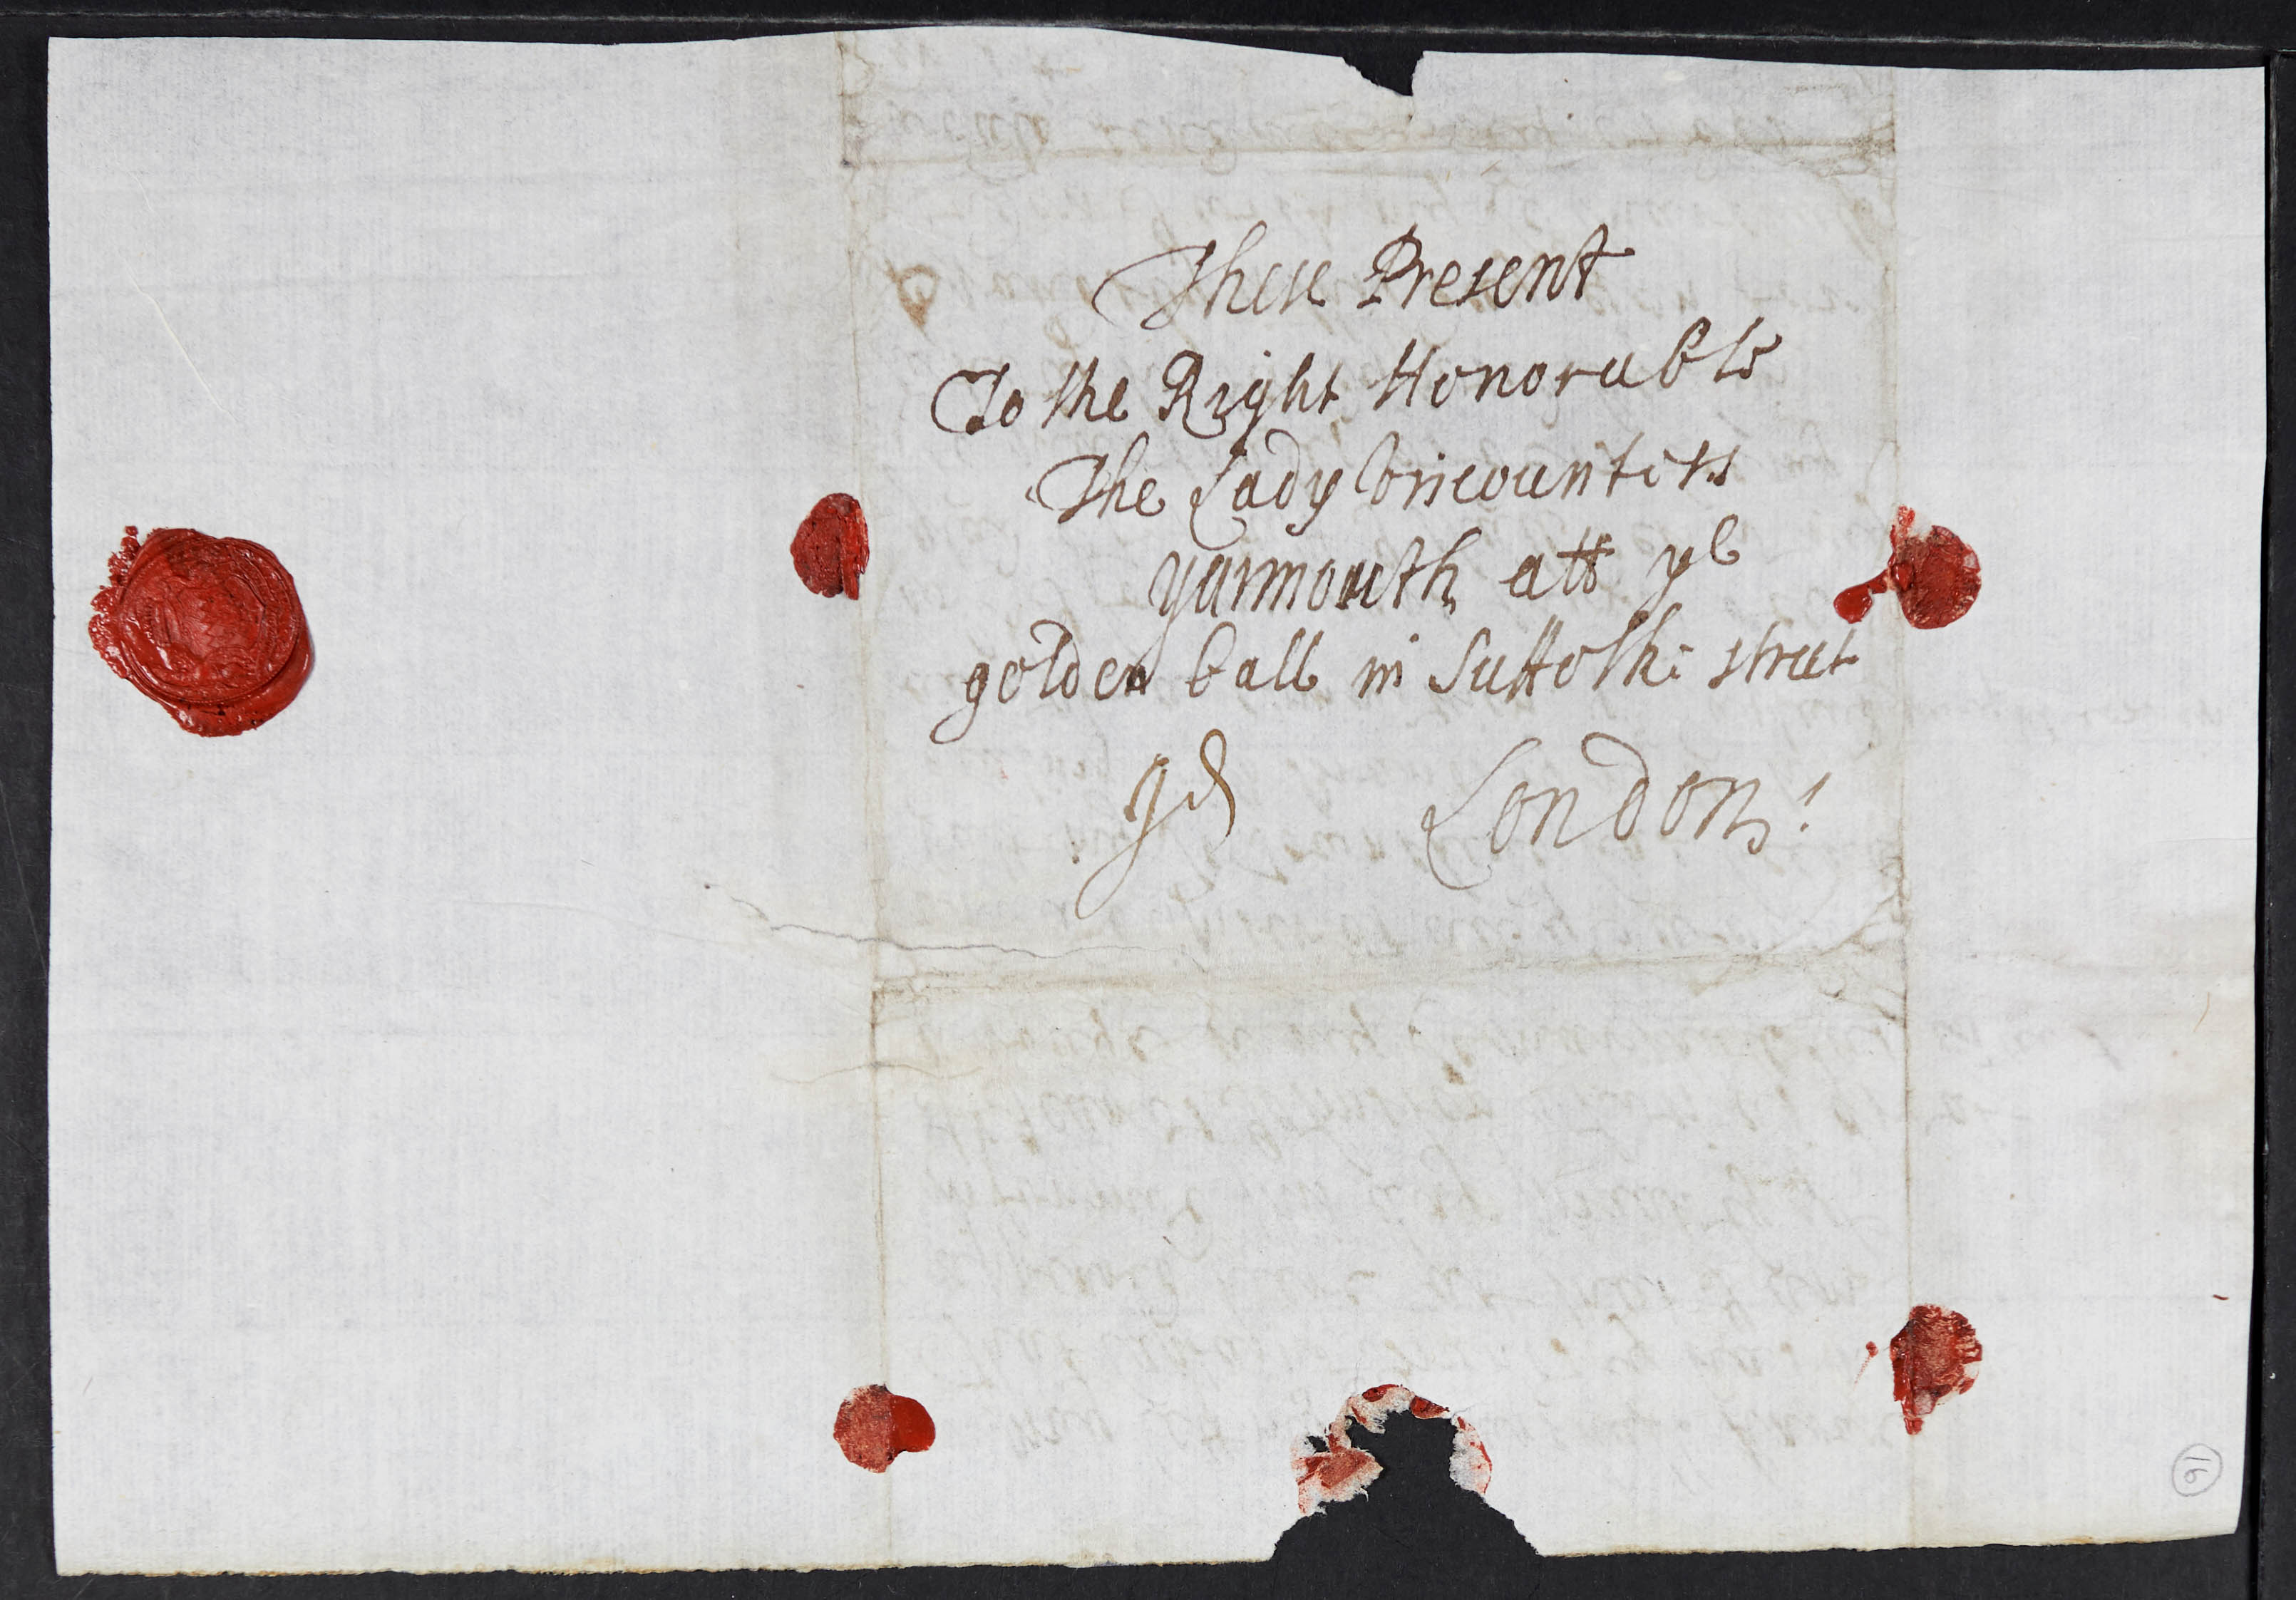 These Present
To the Right Honorable
The Lady Viscountess
yarmouth att ye
golden ball in Suffolke street
London
16